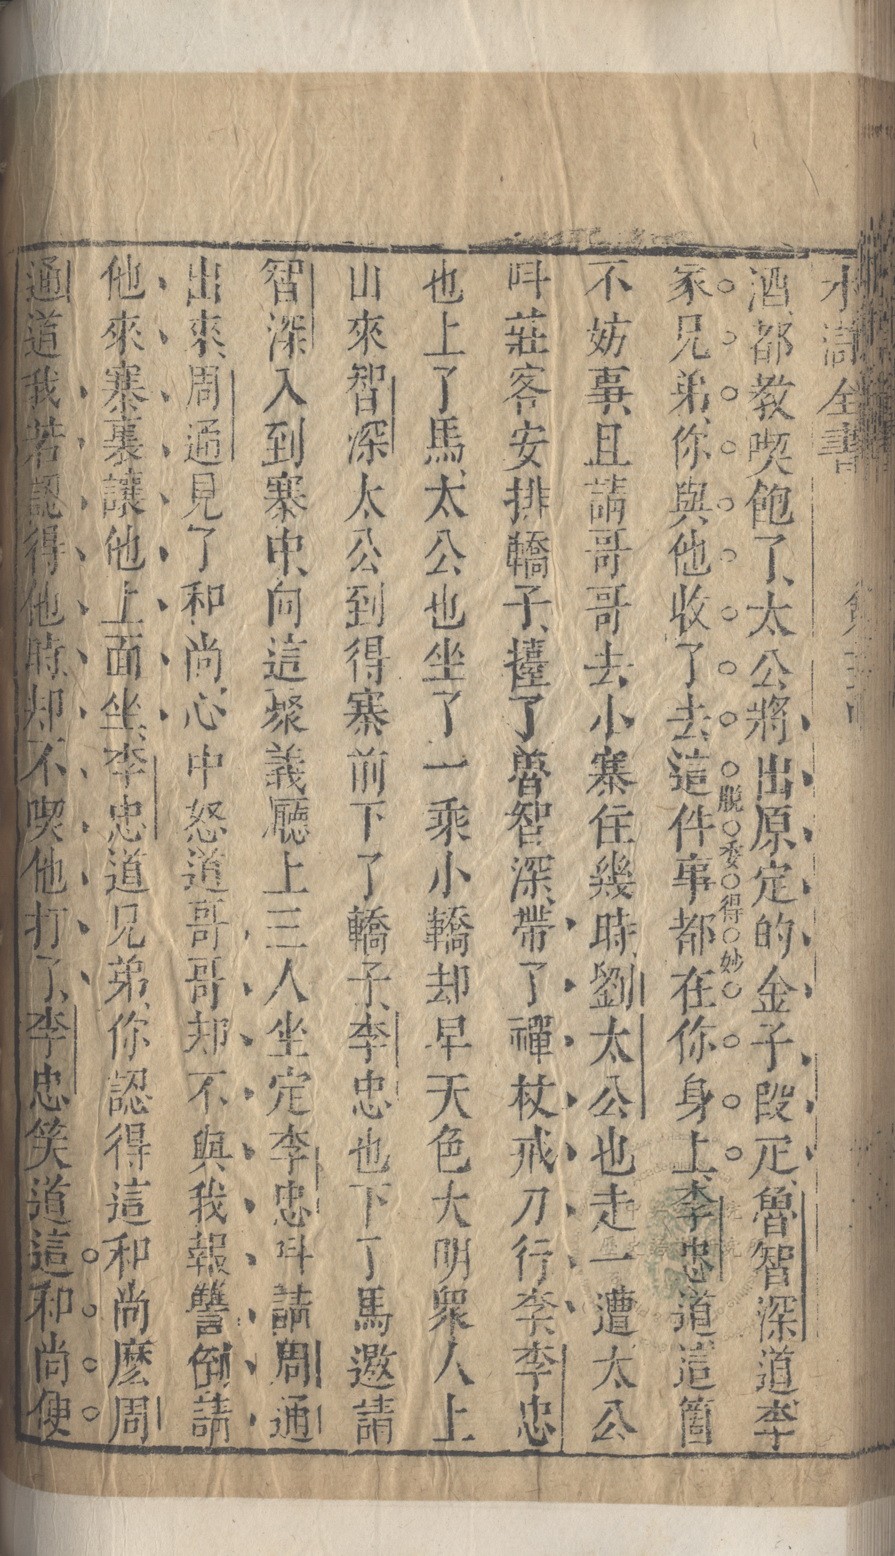 水滸全書
酒、都教喫飽了、太公將出原定的金子段疋、魯智深道李
家兄弟、你與他收了去、這件事都在你身上、李忠道這箇
脫委得妙
不妨事、且請哥哥去小寨住幾時、劉太公也走一遭、太公
呌莊客安排轎子、擡了魯智深、帶了禪杖戒刀行李、李忠
也上了馬、太公也坐了一乘小轎、却早天色大明、眾人上
山來、智深太公到得寨前、下了轎子、李忠也下了馬、邀請
智深入到寨中、向這聚義廳上、三人坐定、李忠呌請周通
出來、周通見了和尚、心中怒道、哥哥却不與我報讐、倒請
他來寨裏、讓他上面坐、李忠道、兄弟、你認得這和尚麼、周
通道、我若認得他時、却不喫他打了、李忠笑道、這和尚便